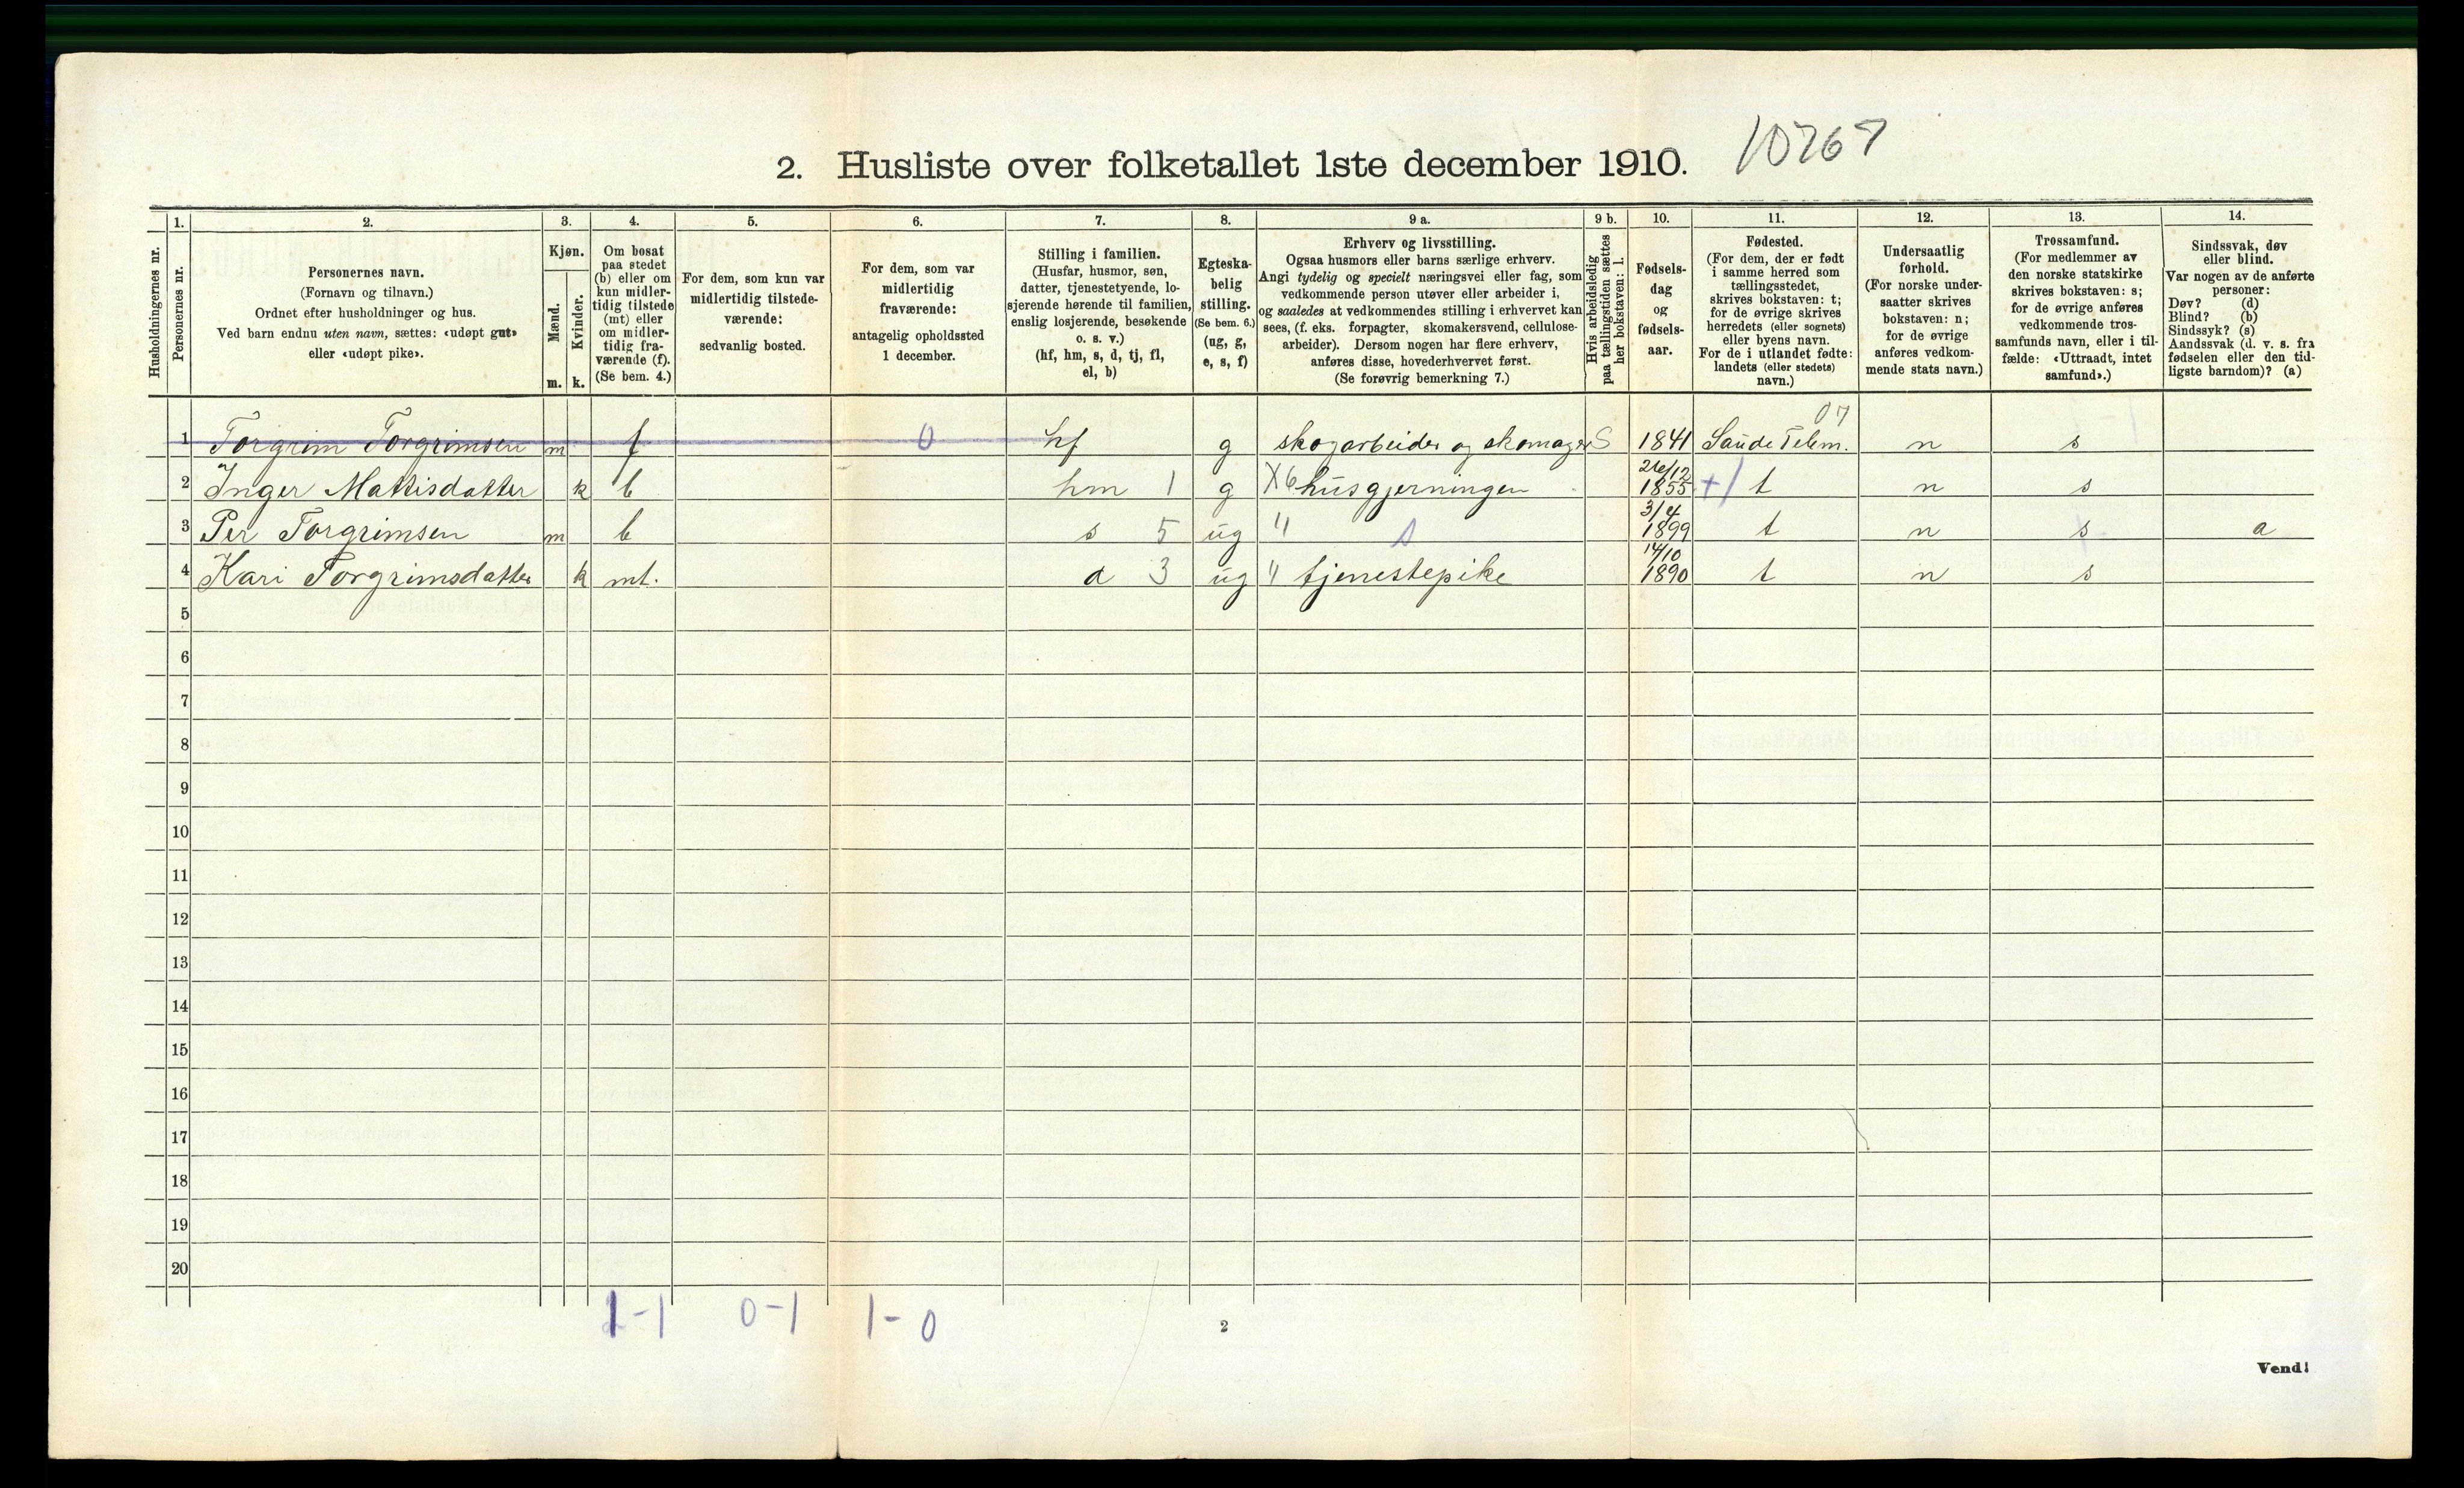 2. Husliste over folketallet 1ste december 1910. 10767
Husholdningernes nr.
1. Personernes nr.
2.
Personernes navn.
(Fornavn og tilnavn.)
Ordnet efter husholdninger og hus.
Ved barn endnu uten navn, sættes: «udøpt gut»
eller «udøpt pike».
3.
Kjøn.
Mænd. m.
Kvinder. k.
4.
Om bosat
paa stedet
(b) eller om
kun midler-
tidig tilstede
(mt) eller
om midler-
tidig fra-
værende (f).
(Se bem. 4.)
5.
For dem, som kun var
midlertidig tilstede-
værende:
sedvanlig bosted.
6.
For dem, som var
midlertidig
fraværende:
antagelig opholdssted
1 december.
7.
Stilling i familien.
(Husfar, husmor, søn,
datter, tjenestetyende, lo-
sjerende hørende til familien,
enslig losjerende, besøkende
o. s. v.)
(hf, hm, s, d, tj, fl,
el, b)
8.
Egteska-
belig
stilling.
(Se bem. 6.)
(ug, g,
e, s, f)
9 a.
Erhverv og livsstilling.
Ogsaa husmors eller barns særlige erhverv.
Angi tydelig og specielt næringsvei eller fag, som
vedkommende person utøver eller arbeider i,
og saaledes at vedkommendes stilling i erhvervet kan
sees, (f. eks. forpagter, skomakersvend, cellulose-
arbeider). Dersom nogen har flere erhverv,
anføres disse, hovederhvervet først.
(Se forøvrig bemerkning 7.)
9 b.
Hvis arbeidsledig
paa tællingstiden sættes
her bokstaven: l.
10.
Fødsels-
dag
og
fødsels-
aar.
11.
Fødested.
(For dem, der er født
i samme herred som
tællingsstedet,
skrives bokstaven: t;
for de øvrige skrives
herredets (eller sognets)
eller byens navn.
For de i utlandet fødte:
landets (eller stedets)
navn.)
12.
Undersaatlig
forhold.
(For norske under-
saatter skrives
bokstaven: n;
for de øvrige
anføres vedkom-
mende stats navn.)
13.
Trossamfund.
(For medlemmer av
den norske statskirke
skrives bokstaven: s;
for de øvrige anføres
vedkommende tros-
samfunds navn, eller i til-
fælde: «Uttraadt, intet
samfund».)
14.
Sindssvak, døv
eller blind.
Var nogen av de anførte
personer:
Døv? (d)
Blind? (b)
Sindssyk? (s)
Aandssvak (d. v. s. fra
fødselen eller den tid-
ligste barndom)? (a)
07
1 Torgrim Torgrimsen m f 0 hf g skogarbeider og skomager S 1841 Saude Telem. n s
2 Inger Mattisdatter k b hm 1 g X6 husgjerningen 26/12 1855 +/ t n s
3 Per Torgrimsen m b s 5 ug " s 3/4 1899 t n s a
4 Kari Torgrimsdatter k mt. d 3 ug " tjenestepike 14/10 1890 t n s
5
6
7
8
9
10
11
12
13
14
15
16
17
18
19
20
1-1 0-1 1-0
2
Vend!